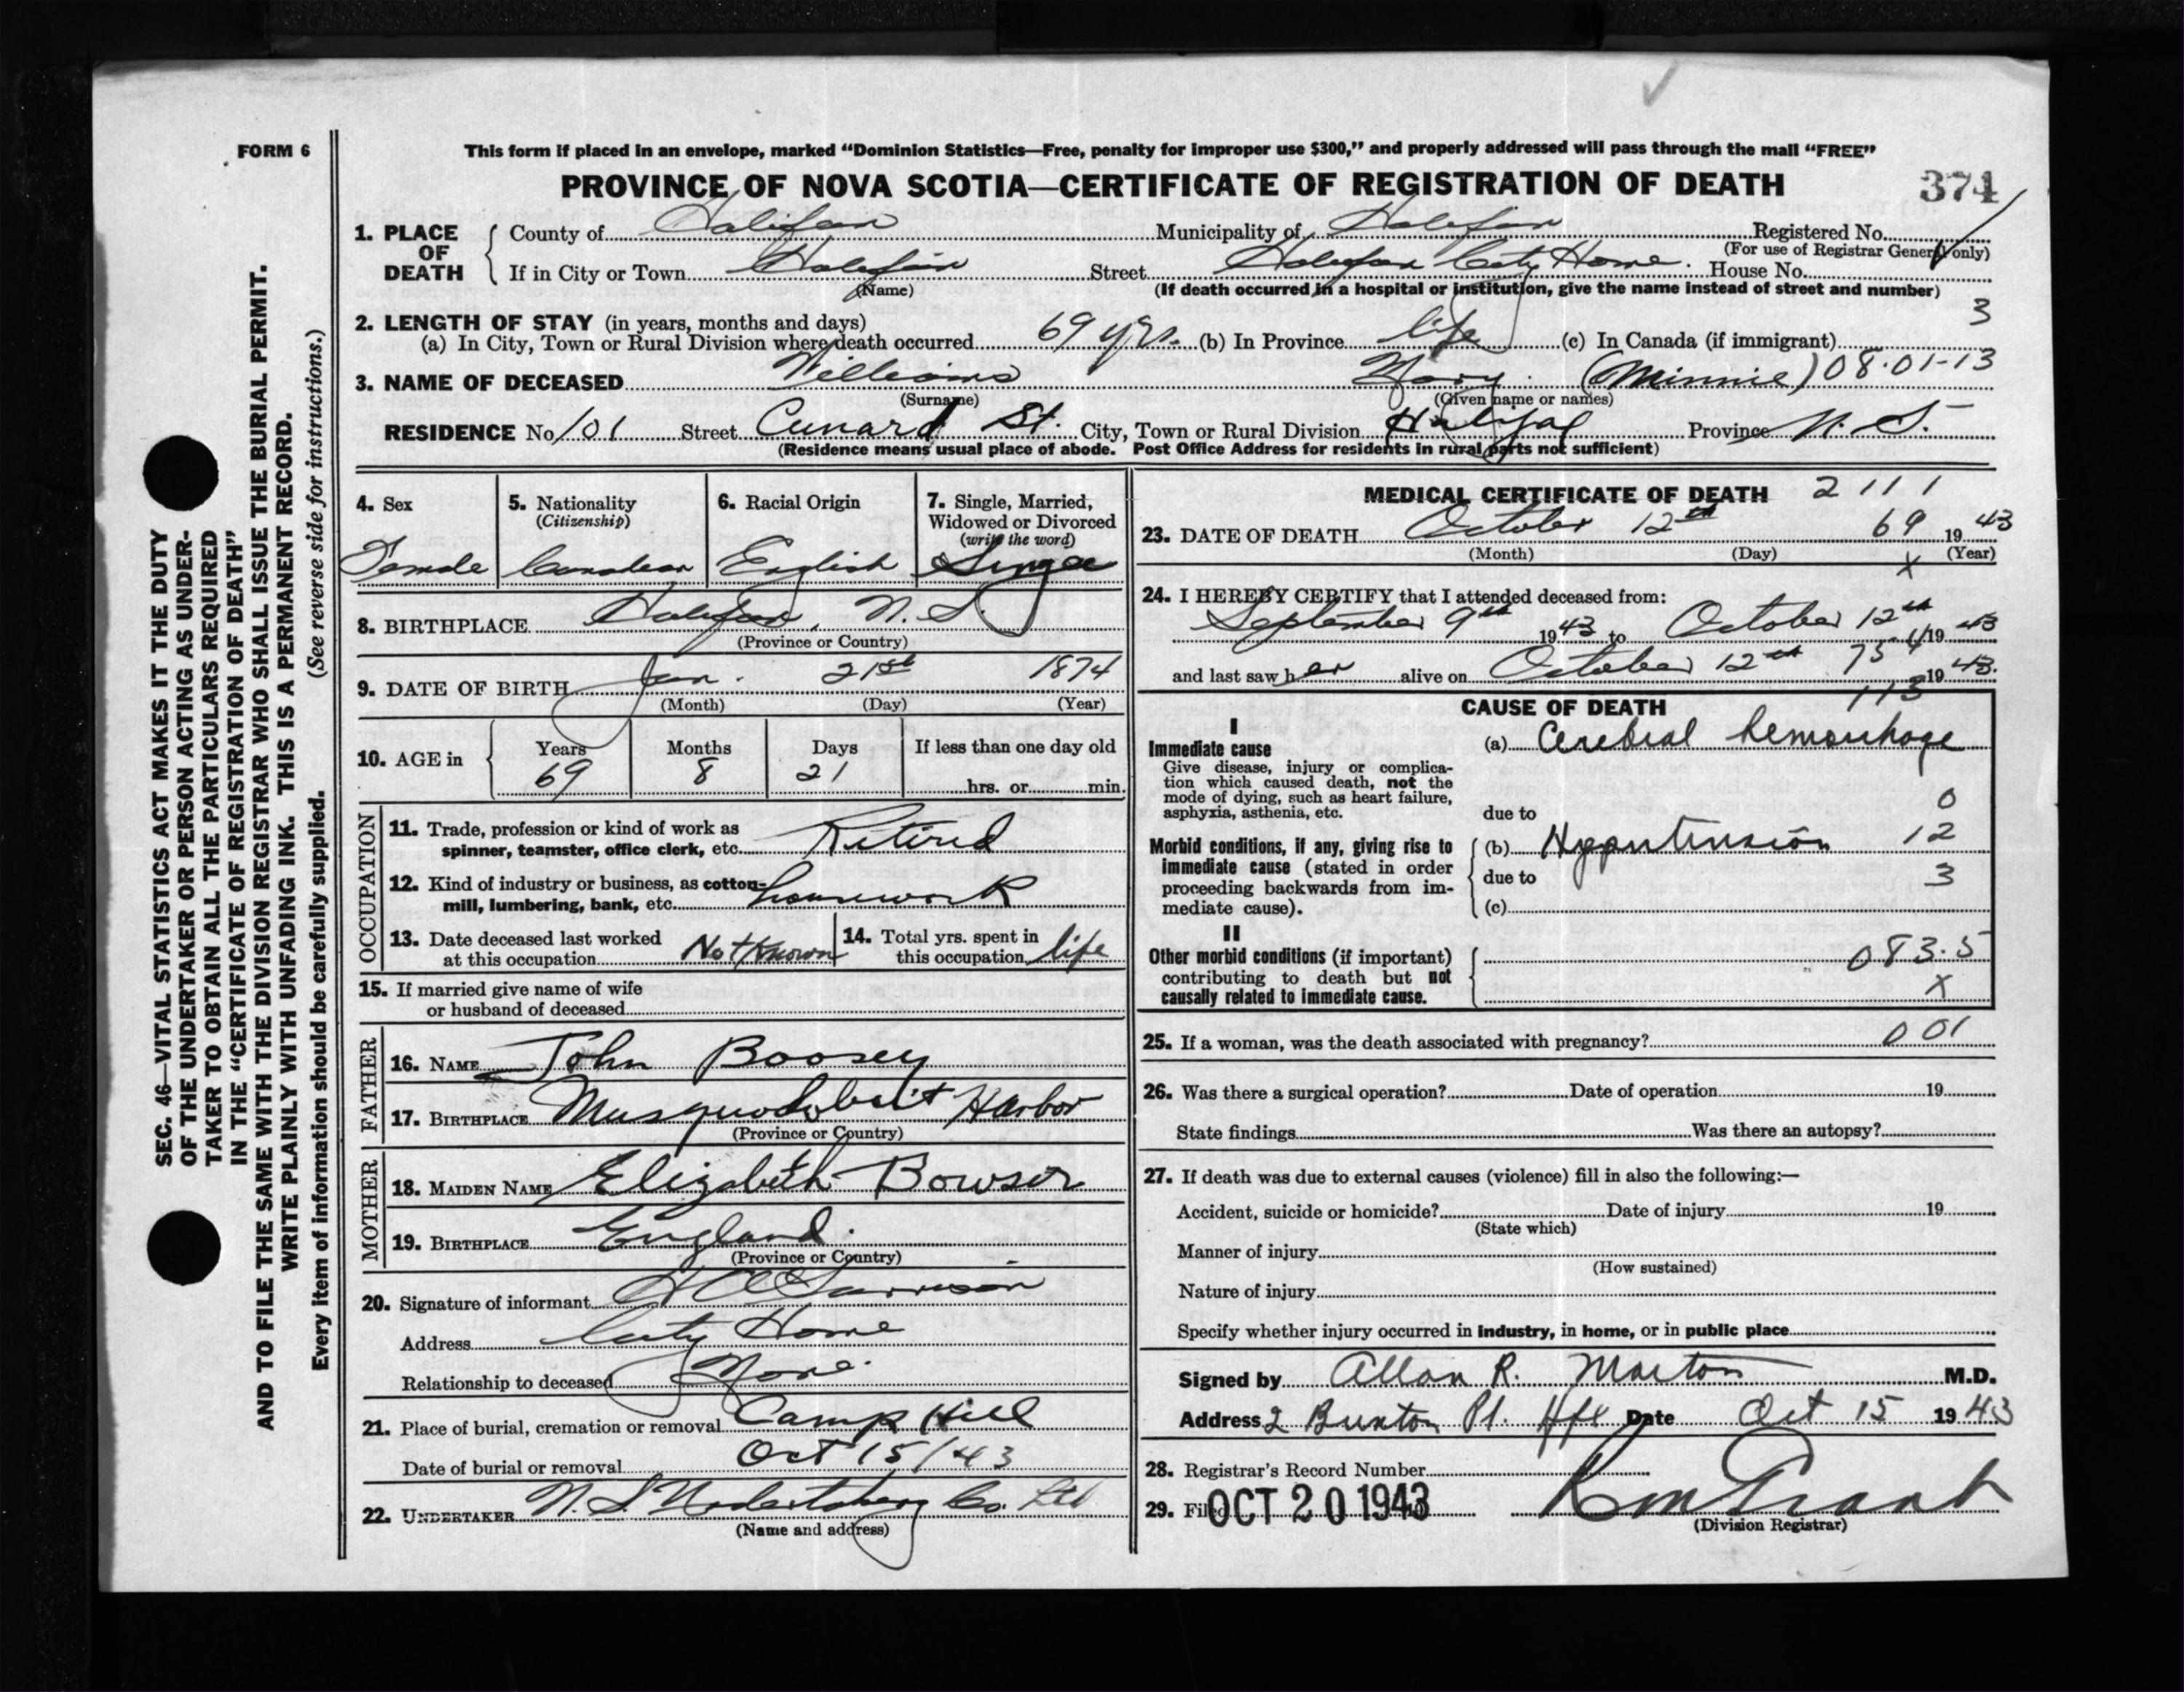 FORM 6
This form if placed in an envelope, marked “Dominion Statistics—Free, penalty for improper use $300,” and properly addressed will pass through the mail “FREE”
PROVINCE OF NOVA SCOTIA—CERTIFICATE OF REGISTRATION OF DEATH 374
1. PLACE OF DEATH
County of Halifax Municipality of Halifax Registered No.
(For use of Registrar General only)
If in City or Town Halifax Street Halifax City Home. House No.
(Name) (If death occurred in a hospital or institution, give the name instead of street and number)
3
2. LENGTH OF STAY (in years, months and days)
(a) In City, Town or Rural Division where death occurred 69 yrs. (b) In Province life (c) In Canada (if immigrant)
3. NAME OF DECEASED Williams Mary. (Minnie) 08.01-13
(Surname) (Given name or names)
RESIDENCE No. 101 Street Cunard St. City, Town or Rural Division Halifax Province N. S.
(Residence means usual place of abode. Post Office Address for residents in rural parts not sufficient)
4. Sex
Female
5. Nationality
(Citizenship)
Canadian
6. Racial Origin
English
7. Single, Married,
Widowed or Divorced
(write the word)
Single
8. BIRTHPLACE Halifax, N. S.
(Province or Country)
9. DATE OF BIRTH Jan. 21st 1874
(Month) (Day) (Year)
10. AGE in
Years Months Days If less than one day old
69 8 21 hrs. or min.
OCCUPATION
11. Trade, profession or kind of work as
spinner, teamster, office clerk, etc. Retired
12. Kind of industry or business, as cotton-
mill, lumbering, bank, etc. housework
13. Date deceased last worked
at this occupation Not Known
14. Total yrs. spent in
this occupation life
15. If married give name of wife
or husband of deceased
FATHER
16. NAME John Boosey
17. BIRTHPLACE Musquodoboit Harbor
(Province or Country)
MOTHER
18. MAIDEN NAME Elizabeth Bowser
19. BIRTHPLACE England.
(Province or Country)
20. Signature of informant
Address City Home
Relationship to deceased None.
21. Place of burial, cremation or removal Camp Hill
Date of burial or removal Oct 15/43
22. UNDERTAKER N. S. Undertaking Co. Ltd
(Name and address)
MEDICAL CERTIFICATE OF DEATH 2111
23. DATE OF DEATH October 12th 69 1943
(Month) (Day) (Year)
x
24. I HEREBY CERTIFY that I attended deceased from:
September 9th 1943 to October 12th 1943
and last saw her alive on October 12th 1943.
CAUSE OF DEATH
I
Immediate cause
Give disease, injury or complica-
tion which caused death, not the
mode of dying, such as heart failure,
asphyxia, asthenia, etc.
(a) Cerebral hemorrhage
0
due to
Morbid conditions, if any, giving rise to
immediate cause (stated in order
proceeding backwards from im-
mediate cause).
(b) Hypertension 12
due to 3
(c)
II
Other morbid conditions (if important)
contributing to death but not
causally related to immediate cause.
083.5
x
25. If a woman, was the death associated with pregnancy? 001
26. Was there a surgical operation? Date of operation 19
State findings Was there an autopsy?
27. If death was due to external causes (violence) fill in also the following:—
Accident, suicide or homicide? Date of injury 19
(State which)
Manner of injury
(How sustained)
Nature of injury
Specify whether injury occurred in industry, in home, or in public place
Signed by Allan R. Morton M.D.
Address 2 Buxton Pl. Hfx Date Oct 15 1943
28. Registrar's Record Number
29. Filed OCT 20 1943
(Division Registrar)
SEC. 46—VITAL STATISTICS ACT MAKES IT THE DUTY
OF THE UNDERTAKER OR PERSON ACTING AS UNDER-
TAKER TO OBTAIN ALL THE PARTICULARS REQUIRED
IN THE “CERTIFICATE OF REGISTRATION OF DEATH”
AND TO FILE THE SAME WITH THE DIVISION REGISTRAR WHO SHALL ISSUE THE BURIAL PERMIT.
WRITE PLAINLY WITH UNFADING INK. THIS IS A PERMANENT RECORD.
Every item of information should be carefully supplied. (See reverse side for instructions.)